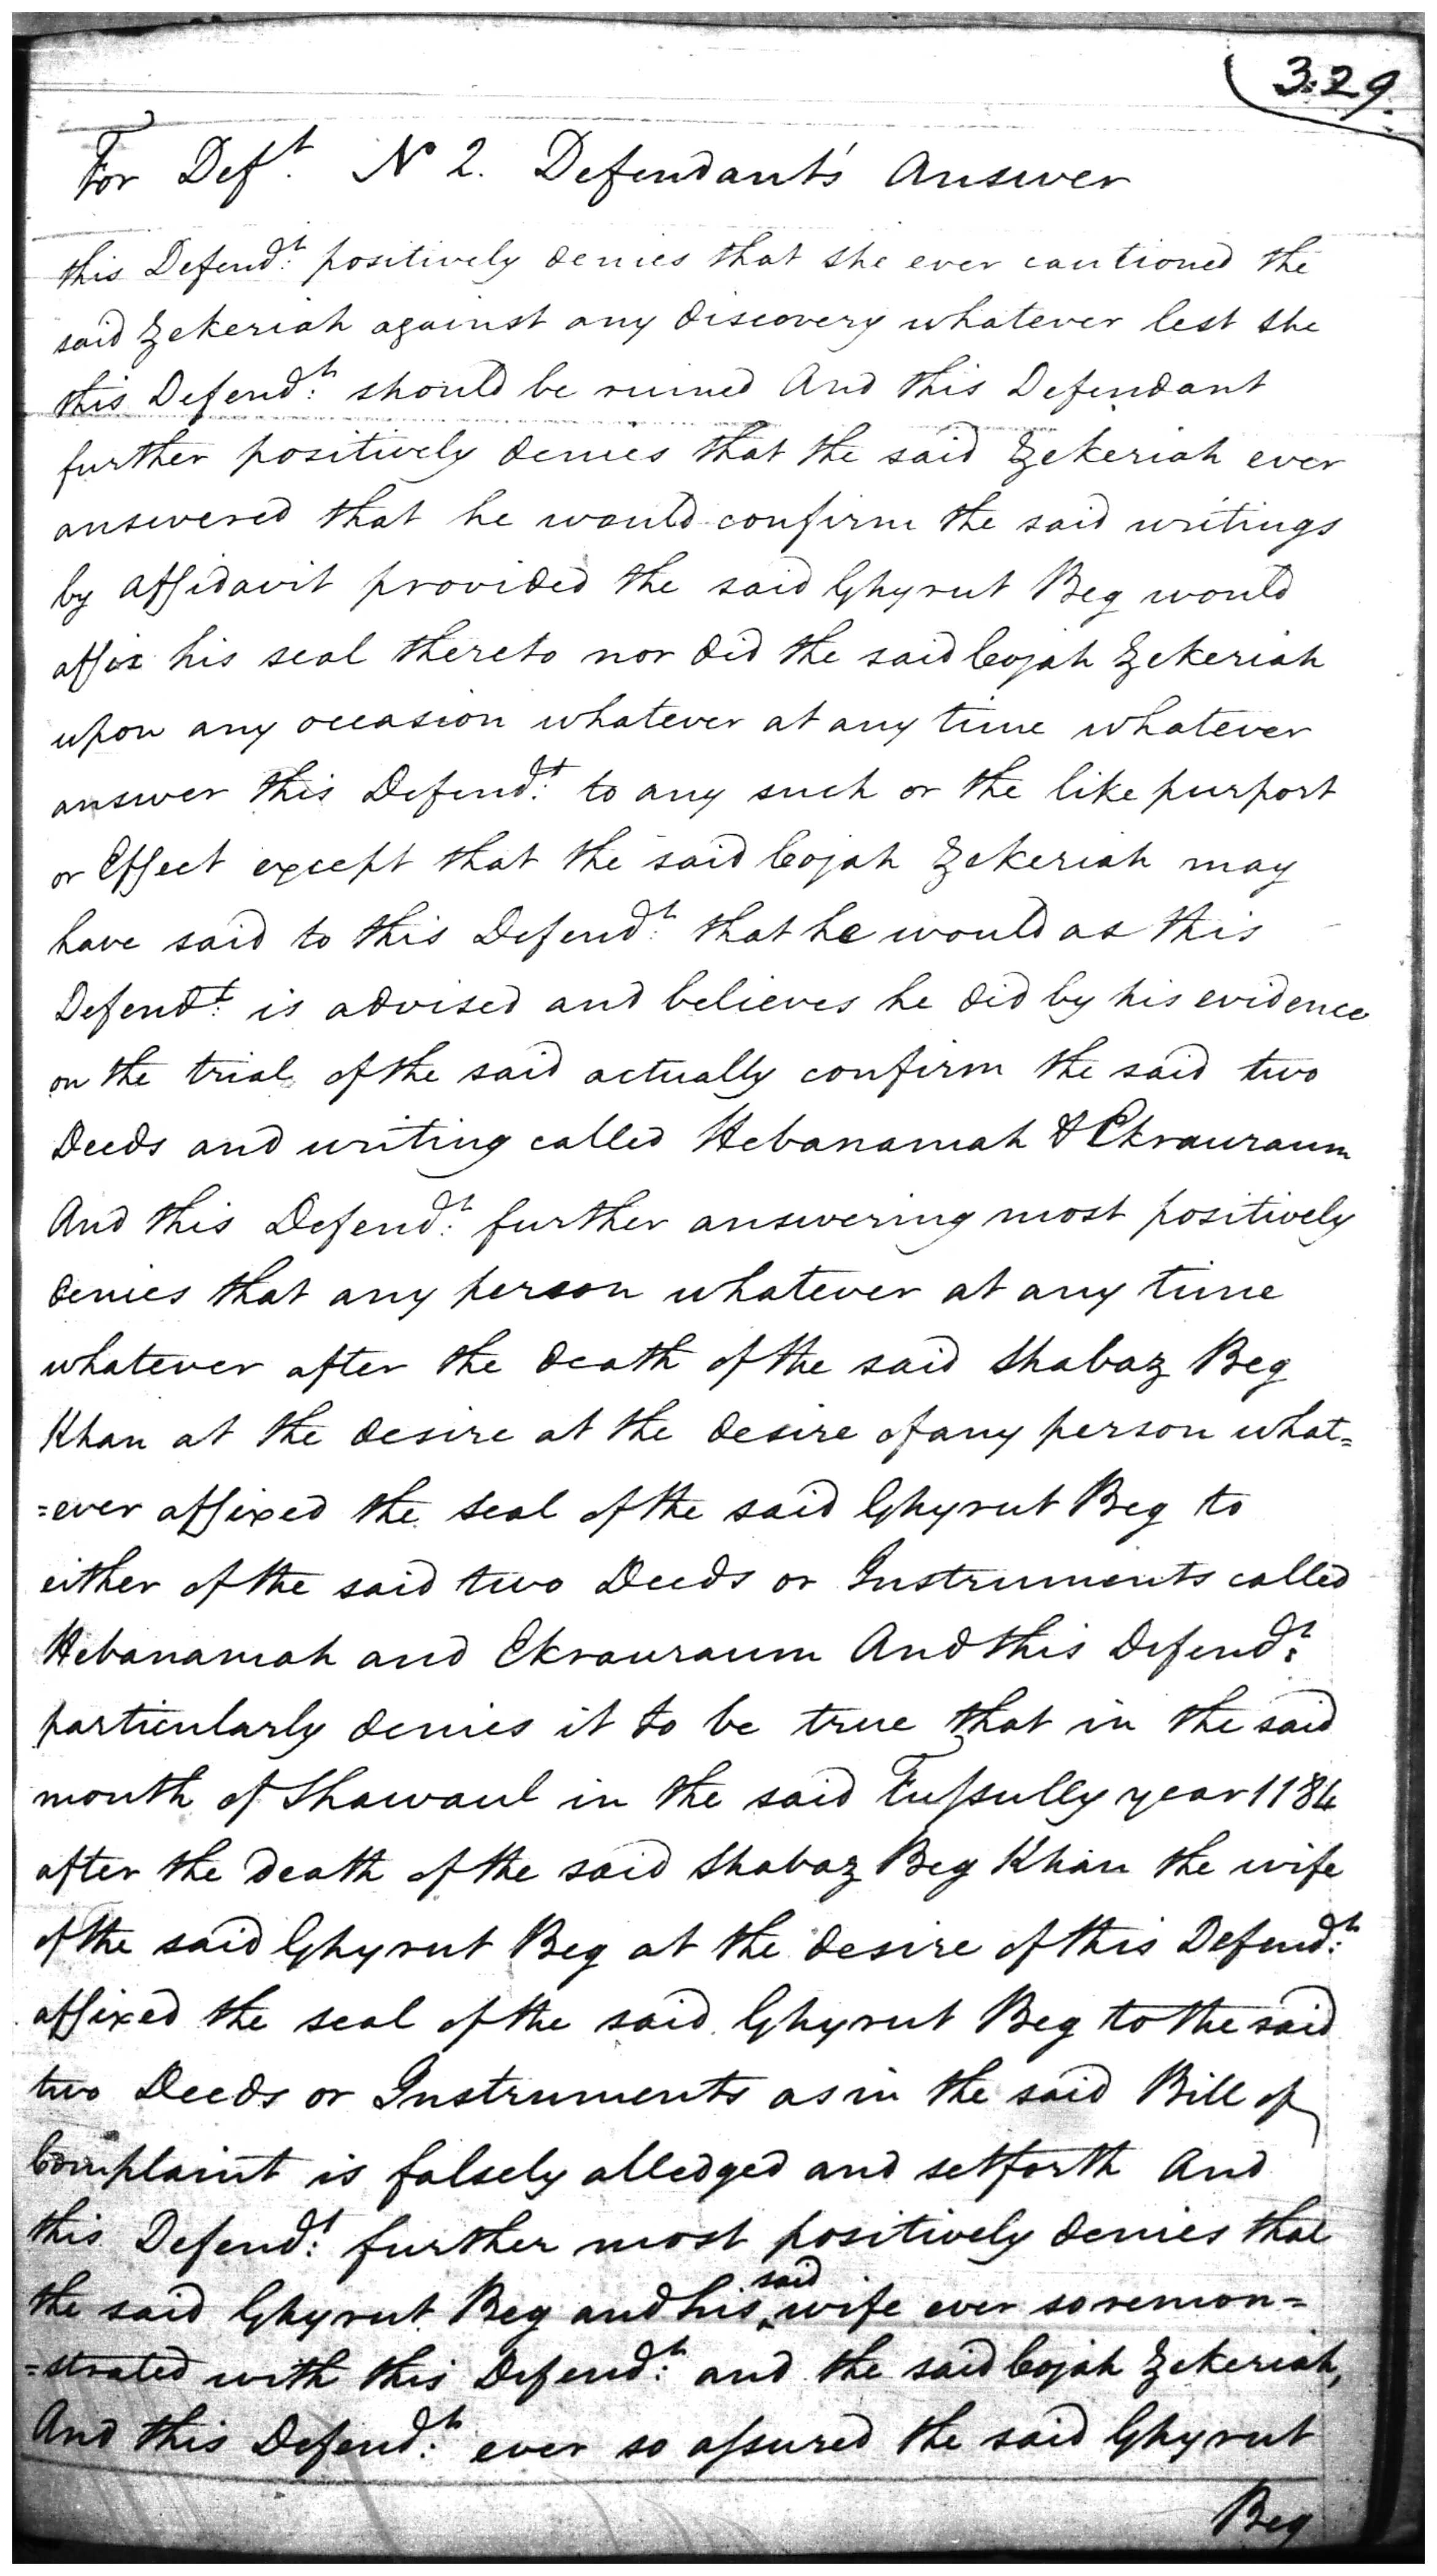 329.
For Def.t No 2. Defendant's Answer
this Defend.t positively denies that she ever cautioned the
said Zekeriah against any discovery whatever lest she
this Defend.t should be ruined And this Defendant
further positively denies that the said Zekeriah ever
answered that he would confirm the said writings
by affidavit provided the said Ghyrut Beg would
affix his seal thereto nor did the said Cojah Zekeriah
upon any occasion whatever at any time whatever
answer this Defend.t to any such or the like purport
or Effect except that the said Cojah Zekeriah may
have said to this Defend.t that he would as this
Defend.t is advised and believes he did by his evidence
on the trial of the said actually confirm the said two
Deeds and writing called Hebanamah & Ekrauraum
And this Defend.t further answering most positively
denies that any person whatever at any time
whatever after the death of the said Shabaz Beg
Khan at the desire at the desire of any person what=
=ever affixed the seal of the said Ghyrut Beg to
either of the said two Deeds or Instruments called
Hebanamah and Ekrauraum And this Defend.t
particularly denies it to be true that in the said
month of Shawaul in the said Fussully year 1184
after the death of the said Shabaz Beg Khan the wife
of the said Ghyrut Beg at the desire of this Defend.t
affixed the seal of the said Ghyrut Beg to the said
two Deeds or Instruments as in the said Bill of
Complaint is falsely alledged and setforth And
this Defend.t further most positively denies that
the said Ghyrut Beg and his said wife ever so remon=
=strated with this Defend.t and the said Cojah Zekeriah,
And this Defend.t ever so assured the said Ghyrut
Beg